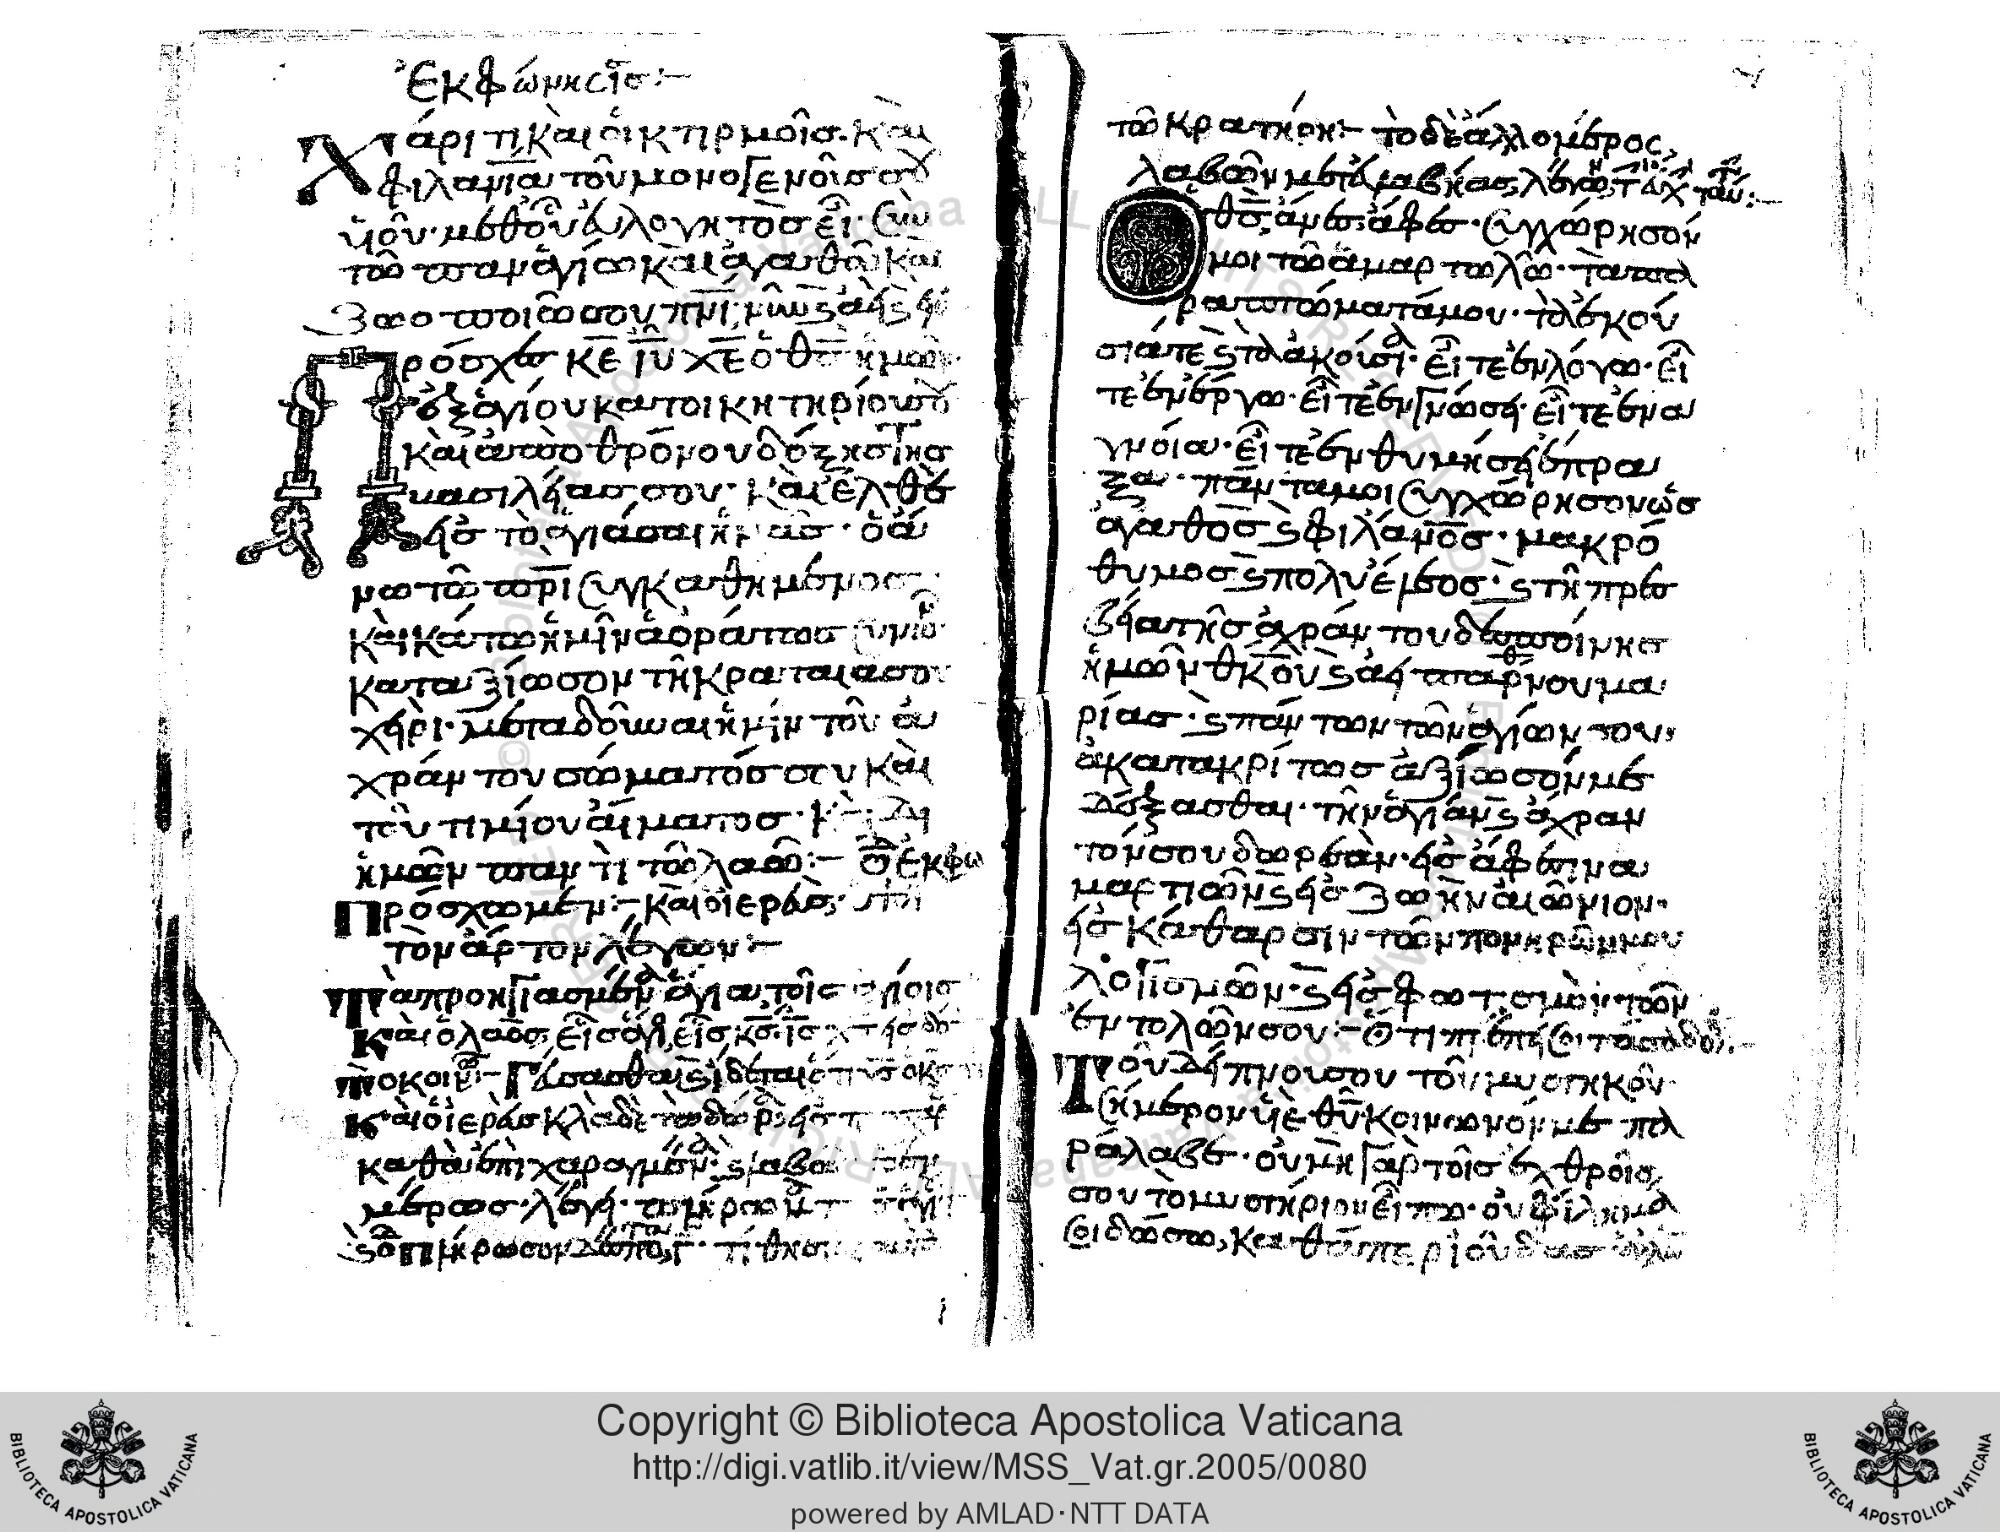 Ἐκφώνησις:-
Χάριτι καὶ οἰκτιρμοῖς καὶ
φιλανίᾳ τοῦ μονογενοῦς σου
ὑιοῦ· μεθ' οὗ εὐλογητὸς εἶ· σὺν
τῶ παναγίω καὶ ἀγαθῶ καὶ
ζωοποιῶ σου πνι· νῦν ϛ ἀεὶ ϛ εἰ
Πρόσχες κε ιυ χε ὁ θς ἡμῶν·
ἐξ ἁγίου κατοικητηρίου σου
καὶ ἀπὸ θρόνου δόξης τῆς
βασιλείας σου· καὶ ἐλθὲ
εἰς τὸ ἁγιάσαι ἡμᾶς· ὁ ἄ
νω τῶ πρι συγκαθήμενος
καὶ κάτω ἡμῖν ἀοράτως συνὼν
καταξίωσον τῆ κραταιᾶ σου
χειρὶ· μεταδοῦναι ἡμῖν τοῦ ἀ
χράντου σώματός σου καὶ
τοῦ τιμίου αἵματος· κ δι
ἡμῶν παντὶ τῶ λαῶ:- ἐκφω
Πρόσχωμεν:- καὶ ὁ ἱερεὺς
τὸν ἄρτον λέγων:-
Τὰ προηγιασμένα ἅγια τοῖς ἁγίοις
καὶ ὁ λαὸς, εἷς ἅγιος, εἷς κς, ις χς εἰς δό
Τὸ κοινω:- Γεύσασθε ϛ ἴδετε ὅτι χς ὁ κς
καὶ ὁ ἱερεὺς κλᾶ
καθὰ ἐπὶ
μέρους· λέγει·
τίθησι
τῶ κρατῆρι:- τὸ δὲ ἄλλο μέρος,
λαβὼν μεταλαβεῖν λέγει
Ὁ θς, ἄνες ἄφες· συγχώρησόν
μοι τῶ ἁμαρτωλῶ· τὰ πα
ραπτώματά μου· τὰ ἑκού
σιά τε ϛ τὰ ἀκούσια· εἴτε ἐν λόγω· εἴ
τε ἐν ἔργω· εἴτε ἐν γνώσει· εἴτε ἐν ἀ
γνοία· εἴτε ἐν θυμήσει ἔπρα
ξα· πάντα μοι συγχώρησον ὡς
ἀγαθὸς ϛ φιλάνος· μακρό
θυμος ϛ πολυέλεος· ϛ τῆ πρεσ
βεία τῆς ἀχράντου δεσποίνης
ἡμῶν θκου ϛ ἀει παρθένου μα
ρίας· ϛ πάντων τῶν ἁγίων σου·
ἀκατακρίτως ἀξίωσόν με
δέξασθαι· τὴν ἁγίαν ϛ ἄχραν
τόν σου δωρεὰν· εἰς ἄφεσιν ἁ
μαρτιῶν ϛ εἰς ζωὴν αἰώνιον·
εἰς κάθαρσιν τῶν πονηρῶν μου
λογισμῶν· ϛ εἰς φωτισμὸν τῶν
ἐντολῶν σου:- Ὅτι πρέπει σοι πᾶσα δό:-
Τοῦ δείπνου σου τοῦ μυστικοῦ
σήμερον υἱὲ θυ κοινωνόν με πα
ράλαβε· οὐ μὴ γὰρ τοῖς ἐχθροῖς
σου τὸ μυστήριον εἴπω· οὐ φίλημά
σοι δώσω, καθάπερ ἰούδας
Copyright © Biblioteca Apostolica Vaticana
http://digi.vatlib.it/view/MSS_Vat.gr.2005/0080
powered by AMLAD·NTT DATA
BIBLIOTECA APOSTOLICA VATICANA
BIBLIOTECA APOSTOLICA VATICANA